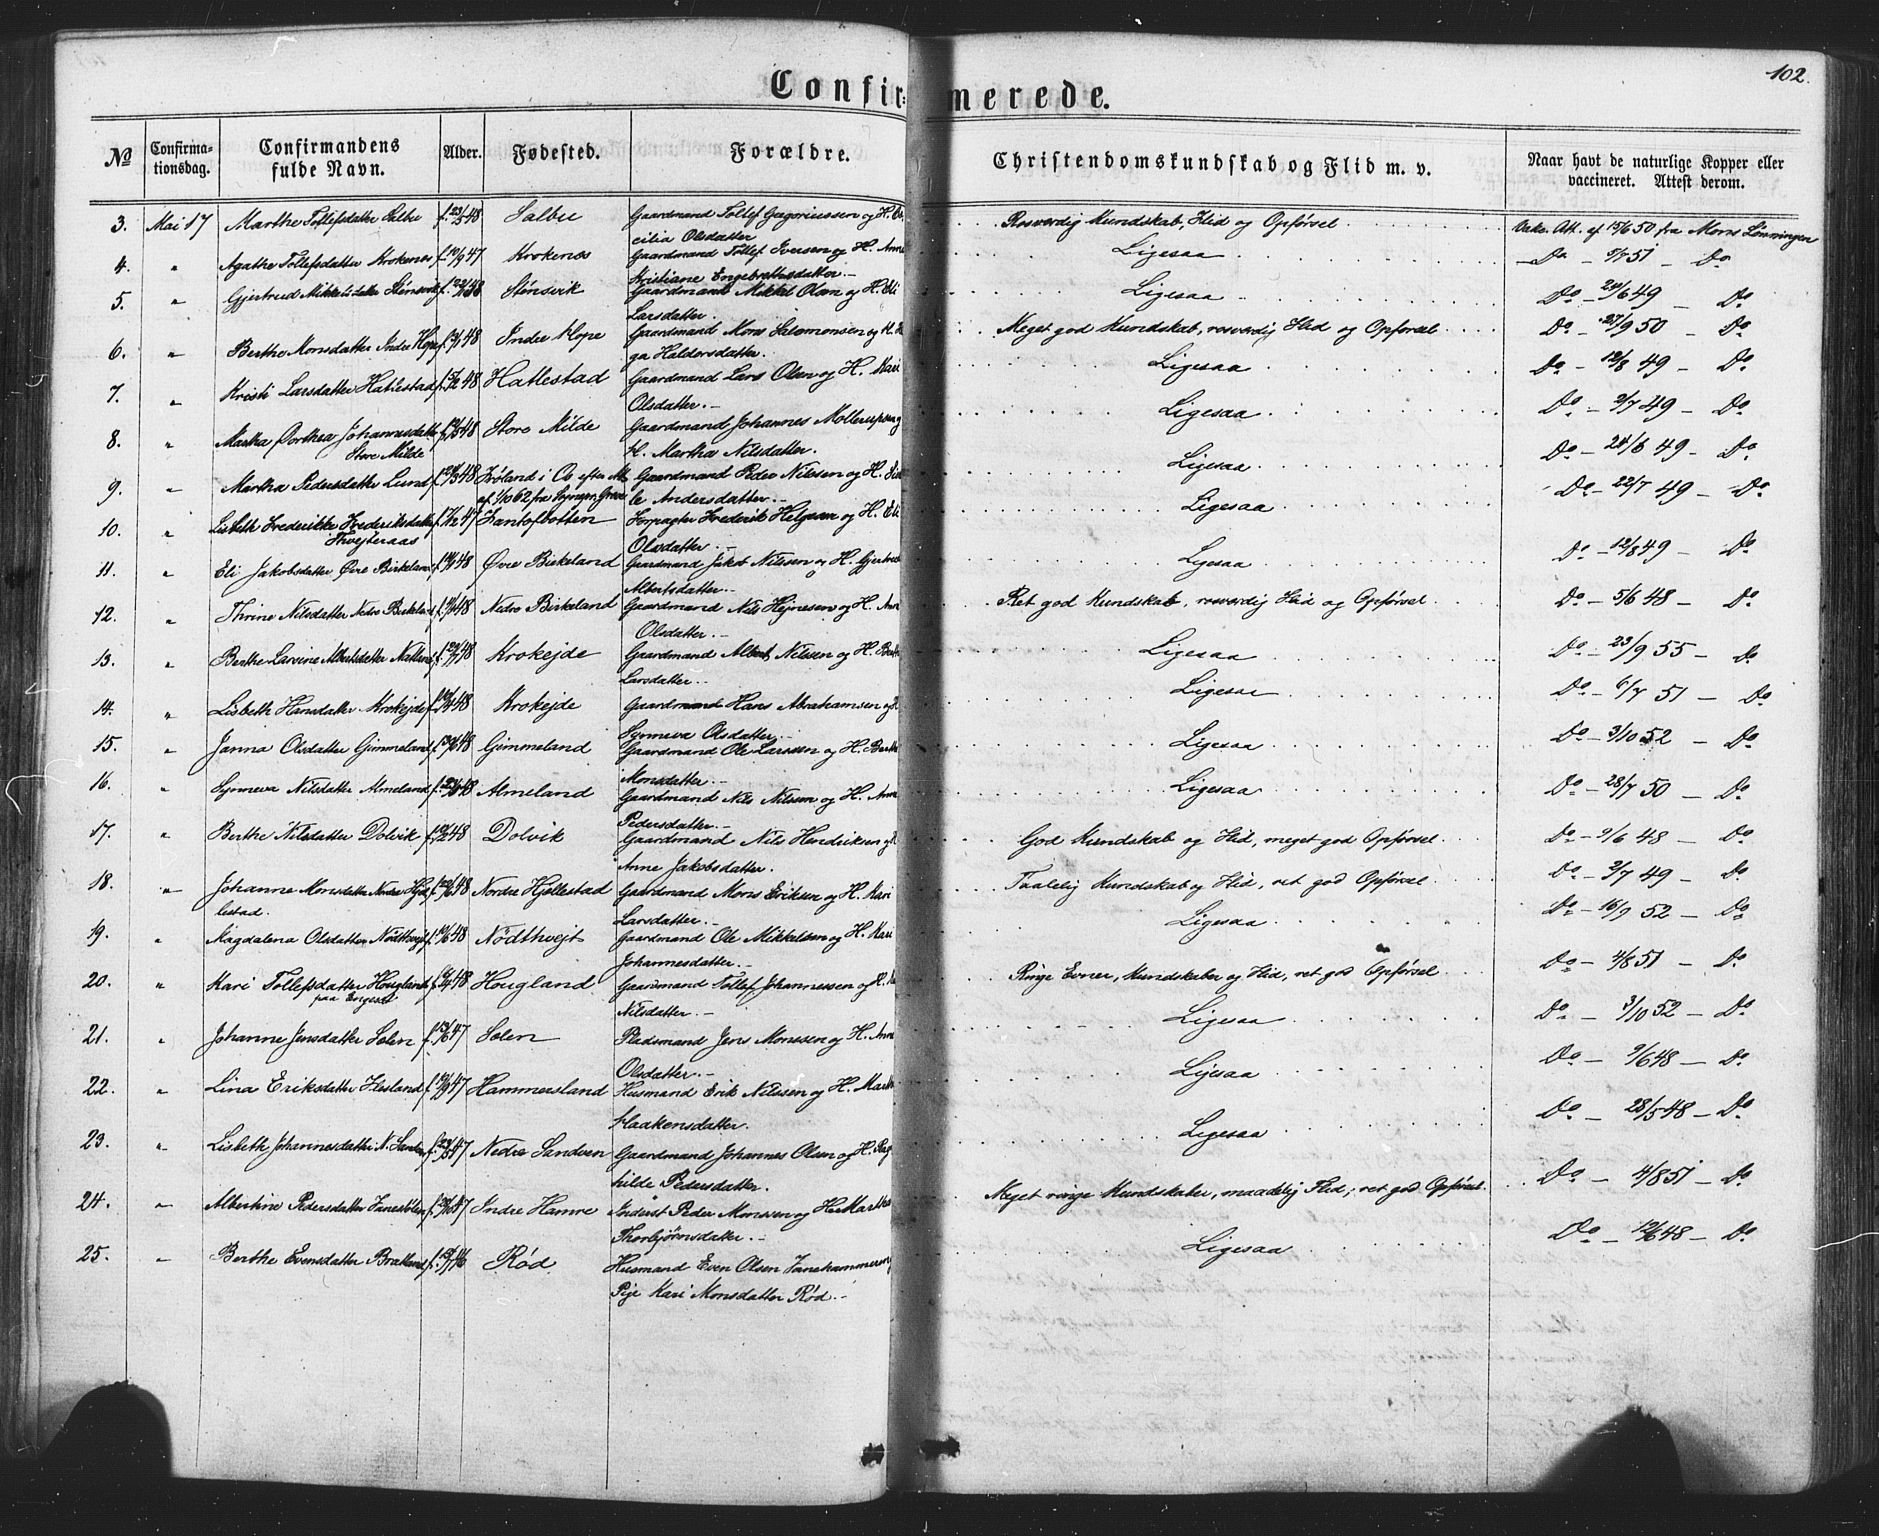 102.
Confirmerede.
No
Confirmationsdag.
Confirmandens fulde Navn.
Alder.
Fødested.
Forældre.
Christendomskundskab og Flid m. v.
Naar havt de naturlige Kopper eller vaccineret. Attest derom.
3. Mai 17 Marthe Tollefsdatter Salbu f. 23/5 48 Salbu Gaardmand Tollef Gregoriussen og H. Ce Rosværdig Kundskab, Flid og Opførsel Vakc. Att. af 15/6 50 fra Mons Lønningen
cilia Olsdatter
4. " Agathe Tollefsdatter Krokenes f. 10/9 47 Krokenes Gaardmand Tollef Iversen og H. Anne Ligesaa Do 5/7 51 Do
Kristiane Engebretsdatter.
5. " Gjertrud Mikkelsdatter Stensvik Stensvik Gaardmand Mikkel Olsen og H. Eli Ligesaa Do 6 49 Do
Larsdatter.
6. " Berthe Monsdatter Indre Hope Indre Hope Gaardmand Mons Salomonsen og H. Meget god Kundskab, rosværdig Flid og Opførsel Do 27/9 50 Do
ga Haldorsdatter.
7. " Kristi Larsdatter Hatlestad 48 Hatlestad Gaardmand Lars Olsen og H. Kari Ligesaa Do 12/8 49 Do
Olsdatter.
8. " Martha Dorthea Johannesdatter 48 Store Milde Gaardmand Johannes Mollerup og Ligesaa Do 2/7 49 Do
Store Milde H. Martha Nilsdatter.
9. " Martha Pedersdatter Lund 48 Frøland i Os efter Att. Gaardmand Peder Nilsen og H. Ligesaa Do 24/6 49 Do
af 1/10 62 fra le Andersdatter.
10. " Lisbeth Frederikke Frederiksdatter 47 Fantoftbotten Forpagter Frederik Helgesen og H. Eli Ligesaa Do 22/7 49 Do
Thvejteraas Olsdatter.
11. " Eli Jakobsdatter Øvre Birkeland 48 Øvre Birkeland Gaardmand Jakob Nilssen og H. Gjertrud Ligesaa Do 12/8 49 Do
Albertsdatter.
12. " Thrine Nilsdatter Nedre Birkeland 48 Nedre Birkeland Gaardmand Nils og H. Anna Ret god Kundskab, rosværdig Flid og Opførsel Do 5/6 48 Do
Olsdatter.
13. " Berthe Larsine Albertsdatter Natland 48 Krokejde Gaardmand Albert Nilssen og H. Berthe Ligesaa Do 23/9 55 Do
Larsdatter.
14. " Lisbeth Hansdatter Krokejde 48 Krokejde Gaardmand Hans Abrahamsen og H. Ligesaa Do 6/7 51 Do
Synneva Olsdatter.
15. " Janna Olsdatter Gimmeland 48 Gimmeland Gaardmand Ole Larssen og H. Berthe Ligesaa Do 3/10 52 Do
Monsdatter.
16. " Synneva Nilsdatter Almeland 48 Almeland Gaardmand Nils Nilssen og H. Anna Ligesaa Do 28/7 50 Do
Pedersdatter.
17. " Berthe Nilsdatter Dolvik 48 Dolvik Gaardmand Nils Hendriksen og H. God Kundskab og Flid, meget god Opførsel Do 9/6 48 Do
Anne Jakobsdatter.
18. " Johanne Monsdatter Nordre Hjel 48 Nordre Hjellestad Gaardmand Mons Eriksen og H. Kari Taalelig Kundskab og Flid, ret god Opførsel Do 2/7 49 Do
lestad. Larsdatter.
19. " Magdalena Olsdatter Nödthvejt 48 Nödthvejt Gaardmand Ole Mikkelsen og H. Kari Ligesaa Do 16/9 52 Do
Johannesdatter.
20. " Kari Tollefsdatter Hougland 48 Hougland Gaardmand Tollef Johannessen og H. Ringe Evner, Kundskaber og Flid, ret god Opførsel Do 4/8 51 Do
paa Engeset Nilsdatter.
21. " Johanne Jensdatter Solem 47 Solem Pladsmand Jens Monssen og H. Anna Ligesaa Do 3/10 52 Do
Olsdatter.
22. " Lina Eriksdatter Flesland 47 Hammersland Husmand Erik Nilssen og H. Martha Ligesaa Do 9/6 48 Do
Haakensdatter.
23. " Lisbeth Johannesdatter N. Sandven 47 Nedre Sandven Gaardmand Johannes Olsen og H. Rag Ligesaa Do 28/5 48 Do
hilde Pedersdatter.
24. " Albertine Pedersdatter 47 Indre Hamre Inderst Peder Monssen og H. Martha Meget ringe Kundskaber, maadelig Flid; ret god Opførsel. Do 4/8 51 Do
Thorbjørnsdatter.
25. " Berthe Evensdatter Bratland 46 Rød Husmand Even Olsen og Ligesaa Do 12/6 48 Do
Pige Kari Monsdatter Rød.